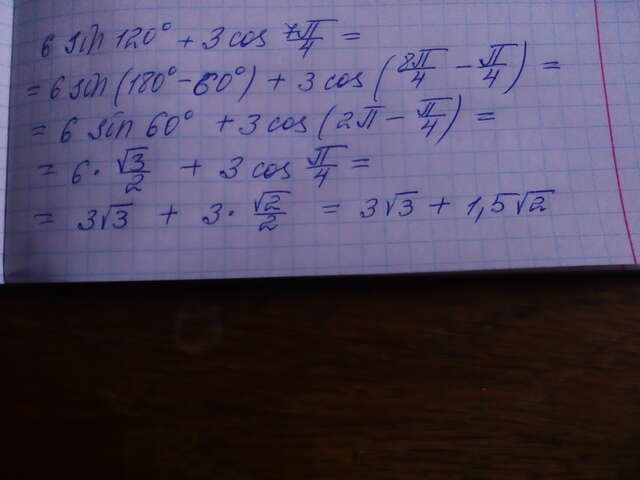 6 sin 120° + 3 cos 7π/4 =
= 6 sin (180° - 60°) + 3 cos (8π/4 - π/4) =
= 6 sin 60° + 3 cos (2π - π/4) =
= 6 · √3/2 + 3 cos π/4 =
= 3√3 + 3 · √2/2 = 3√3 + 1,5√2